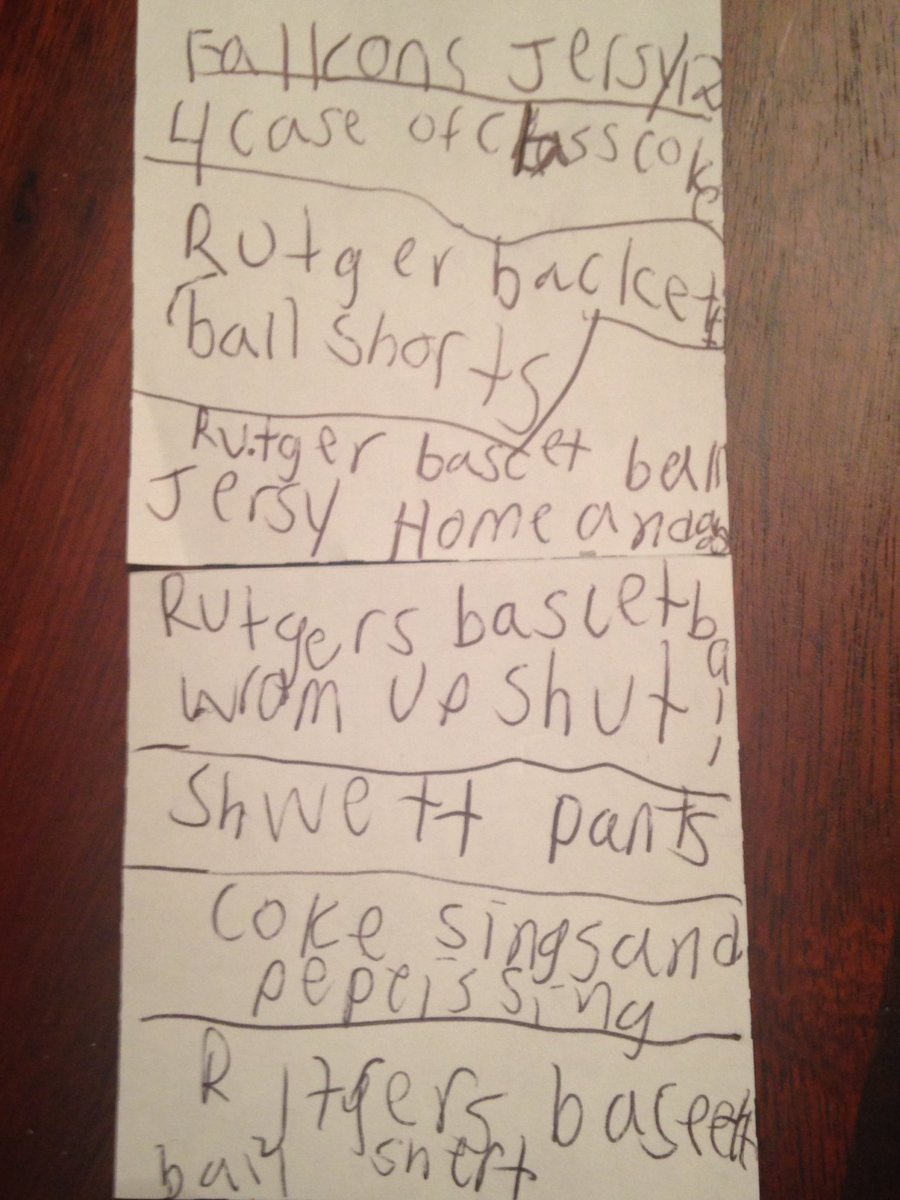 Fallkons Jersy 12
4 case of Class coke
Rutger backet
ball shorts
Rutger bascet ball
Jersy Home and
Rutgers bascetball
wrom up shut
Shwett pants
Coke sings and
pepeis sing
Rutgers baseett
ball shert